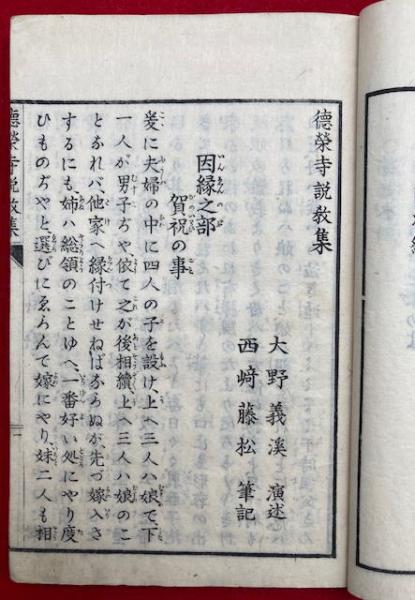 徳榮寺説教集
大野義溪 演述
西﨑藤松 筆記
因縁之部
賀祝の事
爰に夫婦の中に四人の子を設け上へ三人ハ娘で下
一人が男子ぢや依て之が後相續上へ三人ハ娘のこ
となれバ他家へ縁付けせねばならぬが先づ嫁入さ
するにも、姉ハ総領のことゆへ、一番好い処にやり度
ひものぢやと、選びにゑらんで嫁にやり、妹二人も相
徳榮寺説教集
一